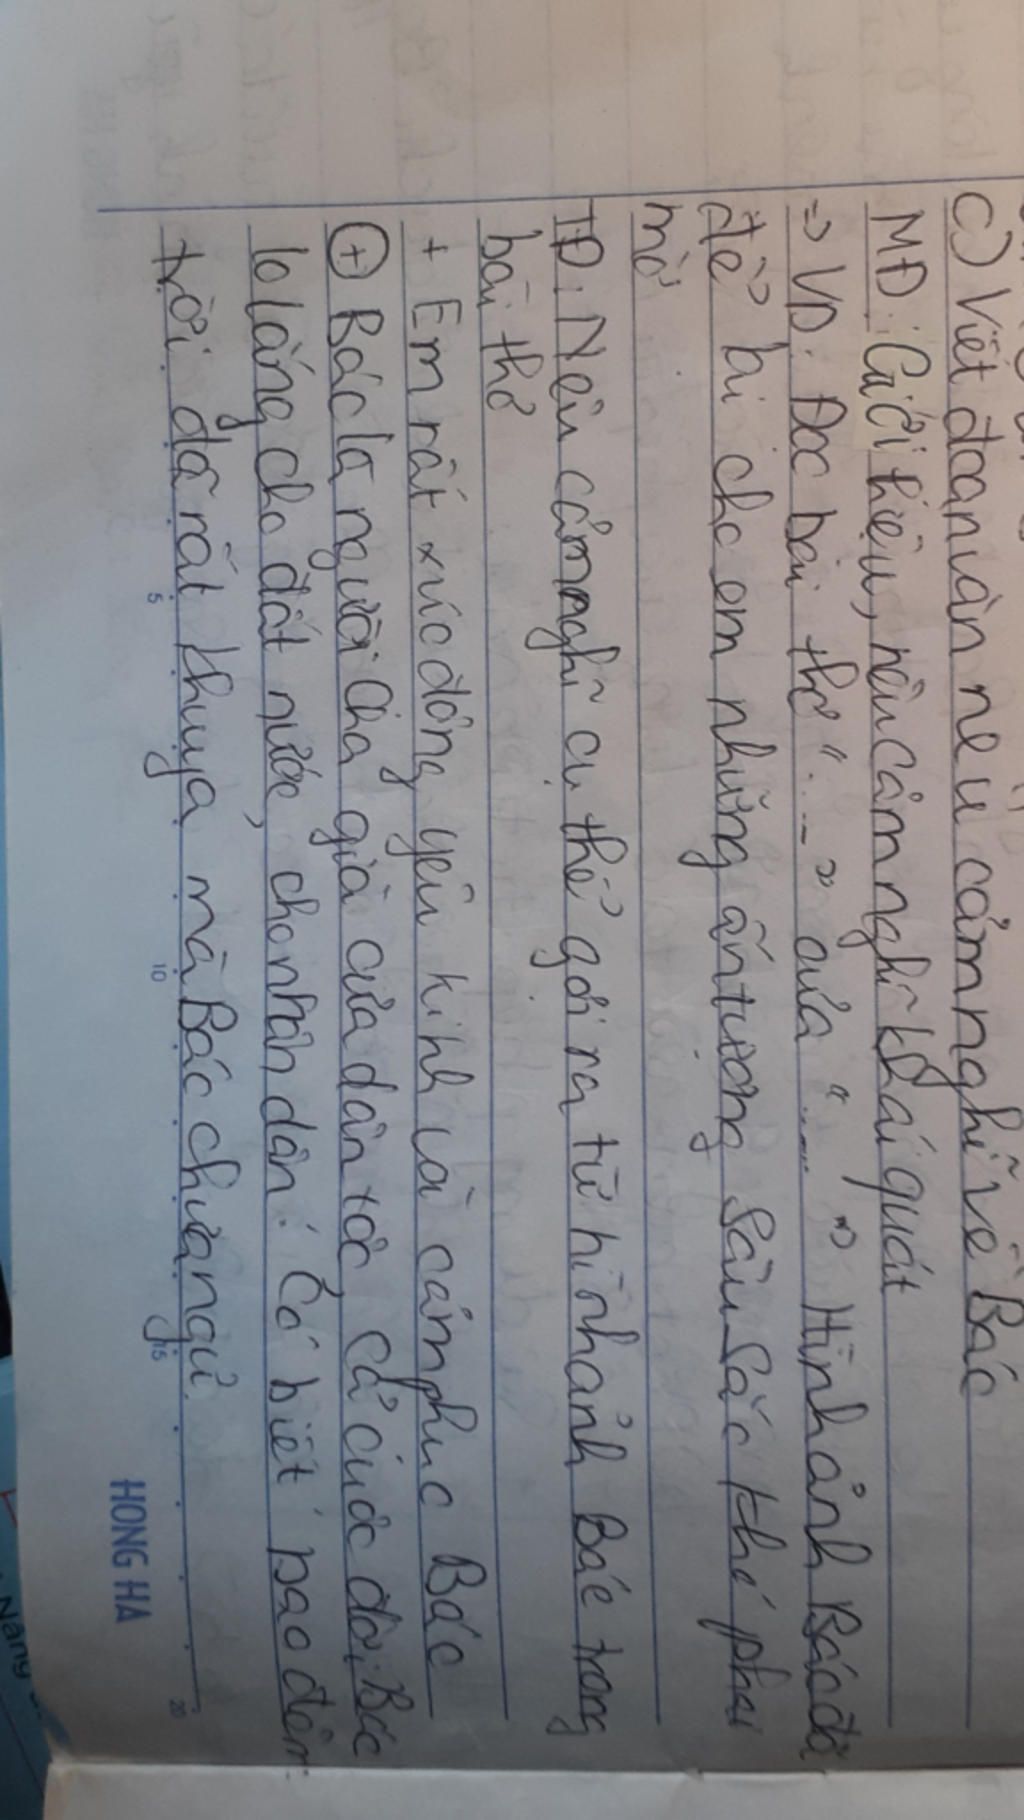 C) Viết đoạn văn nêu cảm nghĩ về Bác
MĐ: Giới thiệu, nêu cảm nghĩ khái quát
=> VD: Đọc bài thơ "...." của "...." Hình ảnh Bác đã
để lại cho em những ấn tượng sâu sắc khó phai
mờ
TĐ: Nêu cảm nghĩ cụ thể gợi ra từ hình ảnh Bác trong
bài thơ
+ Em rất xúc động, yêu kính và cảm phục Bác
+ Bác là người cha già của dân tộc, cả cuộc đời Bác
lo lắng cho đất nước, cho nhân dân. Có biết bao đêm
trời đã rất khuya mà Bác chưa ngủ.
5
10
15
20
HONG HA